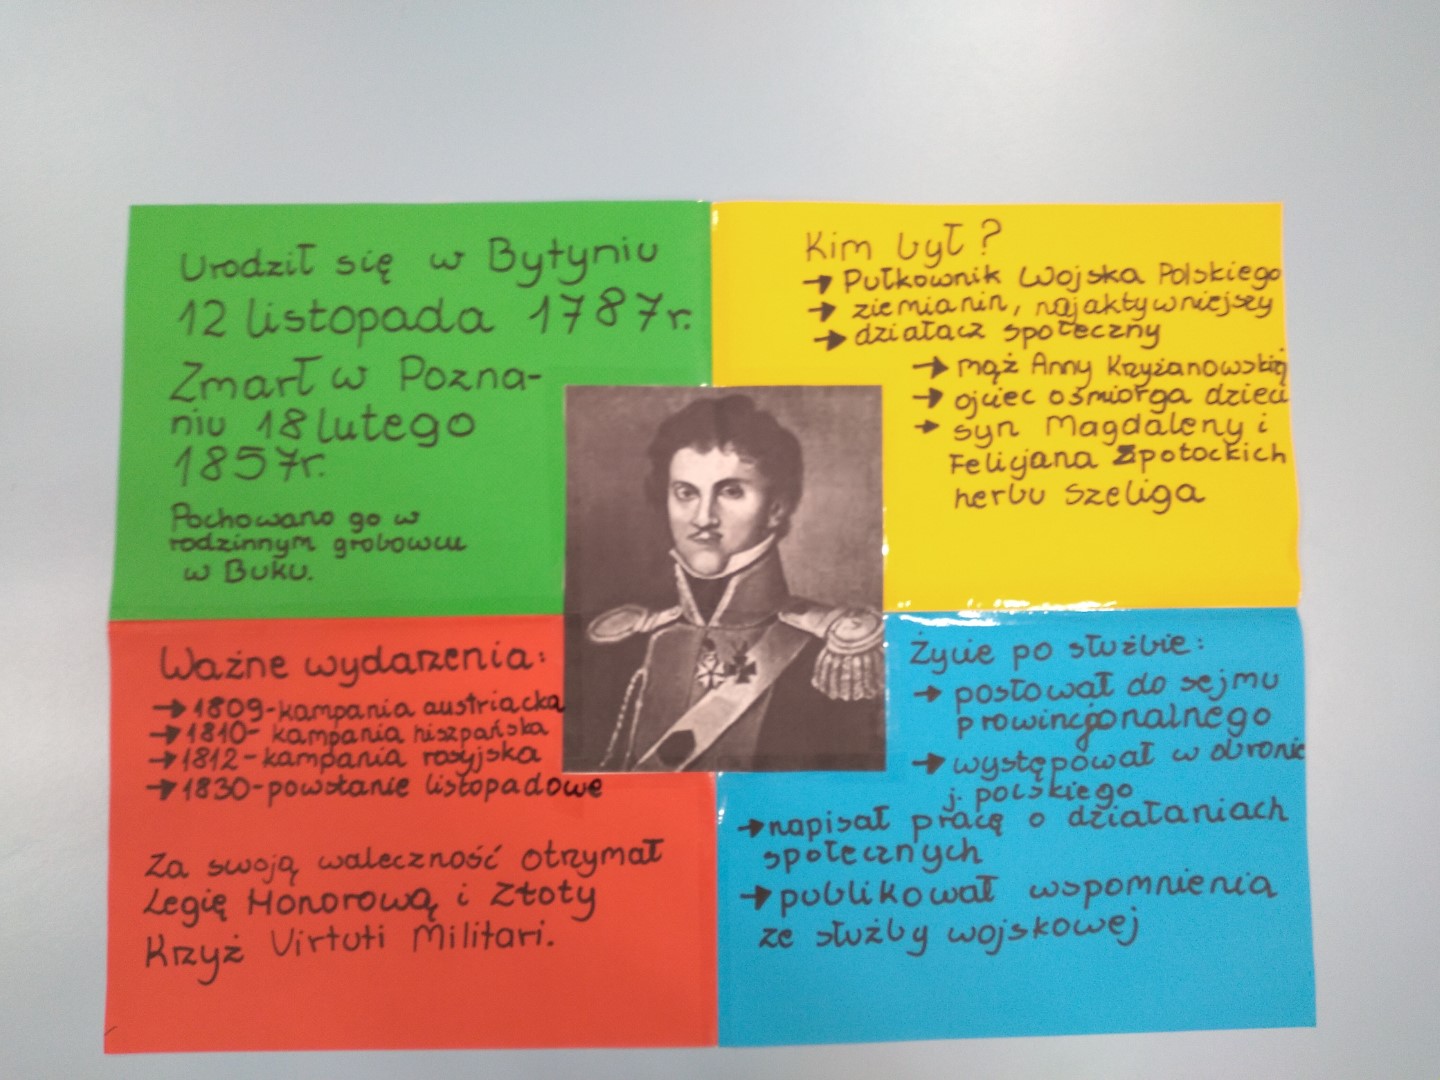 Urodził się w Bytyniu
12 listopada 1787r.
Zmarł w Pozna-
niu 18 lutego
1857r.
Pochowano go w
rodzinnym grobowcu
w Buku.
Kim był?
→ Pułkownik Wojska Polskiego
→ ziemianin, najaktywniejszy
→ działacz społeczny
→ mąż Anny Krzyżanowskiej
→ ojciec ośmiorga dzieci
→ syn Magdaleny i
Felicjana Zpotockich
herbu Szeliga
Ważne wydarzenia:
→ 1809-kampania austriacka
→ 1810- kampania hiszpańska
→ 1812-kampania rosyjska
→ 1830-powstanie listopadowe
Za swoją waleczność otrzymał
Legię Honorową i Złoty
Krzyż Virtuti Militari.
Życie po służbie:
→ posłował do sejmu
prowincjonalnego
→ występował w obronie
j. polskiego
→ napisał pracę o działaniach
społecznych
→ publikował wspomnienia
ze służby wojskowej